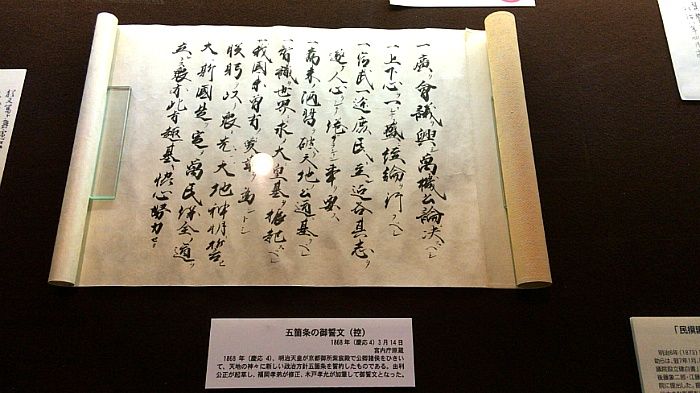 一廣ク會議ヲ興シ萬機公論ニ決スヘシ
一上下心ヲ一ニシテ盛ニ經綸ヲ行フヘシ
一官武一途庶民ニ至ル迄各其志ヲ
遂ケ人心ヲシテ倦マサラシメン事ヲ要ス
一舊來ノ陋習ヲ破リ天地ノ公道ニ基クヘシ
一智識ヲ世界ニ求メ大ニ皇基ヲ振起スヘシ
我國未曾有ノ變革ヲ爲ントシ
朕躬ヲ以テ衆ニ先シ天地神明ニ誓ヒ
大ニ斯國是ヲ定メ萬民保全ノ道ヲ
立ントス衆亦此旨趣ニ基キ協心努力セヨ
五箇条の御誓文（控）
1868 年（慶応 4）3 月 14 日
宮内庁所蔵
1868 年（慶応 4）、明治天皇が京都御所紫宸殿で公卿諸侯をひきい
て、天地の神々に新しい政治方針五箇条を誓約したものである。由利
公正が起草し、福岡孝弟が修正、木戸孝允が加筆して御誓文となった。
「民撰
明治6年（1873）
議院設立建白書」
後藤象二郎・江藤